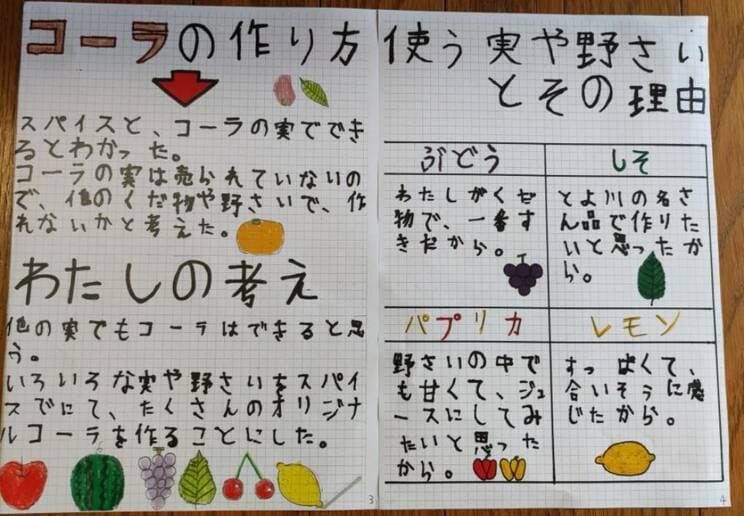 コーラの作り方
スパイスと、コーラの実ででき
るとわかった。
コーラの実は売られていないの
で、他のくだ物や野さいで、作
れないかと考えた。
わたしの考え
他の実でもコーラはできると思
う。
いろいろな実や野さいをスパイ
スでにて、たくさんのオリジナ
ルコーラを作ることにした。
3
使う実や野さい
とその理由
ぶどう
わたしがくだ
物で、一番す
きだから。
しそ
とよ川の名さ
ん品で作りた
いと思ったか
ら。
パプリカ
野さいの中で
も甘くて、ジュ
ースにしてみ
たいと思った
から。
レモン
すっぱくて、
合いそうに感
じたから。
4